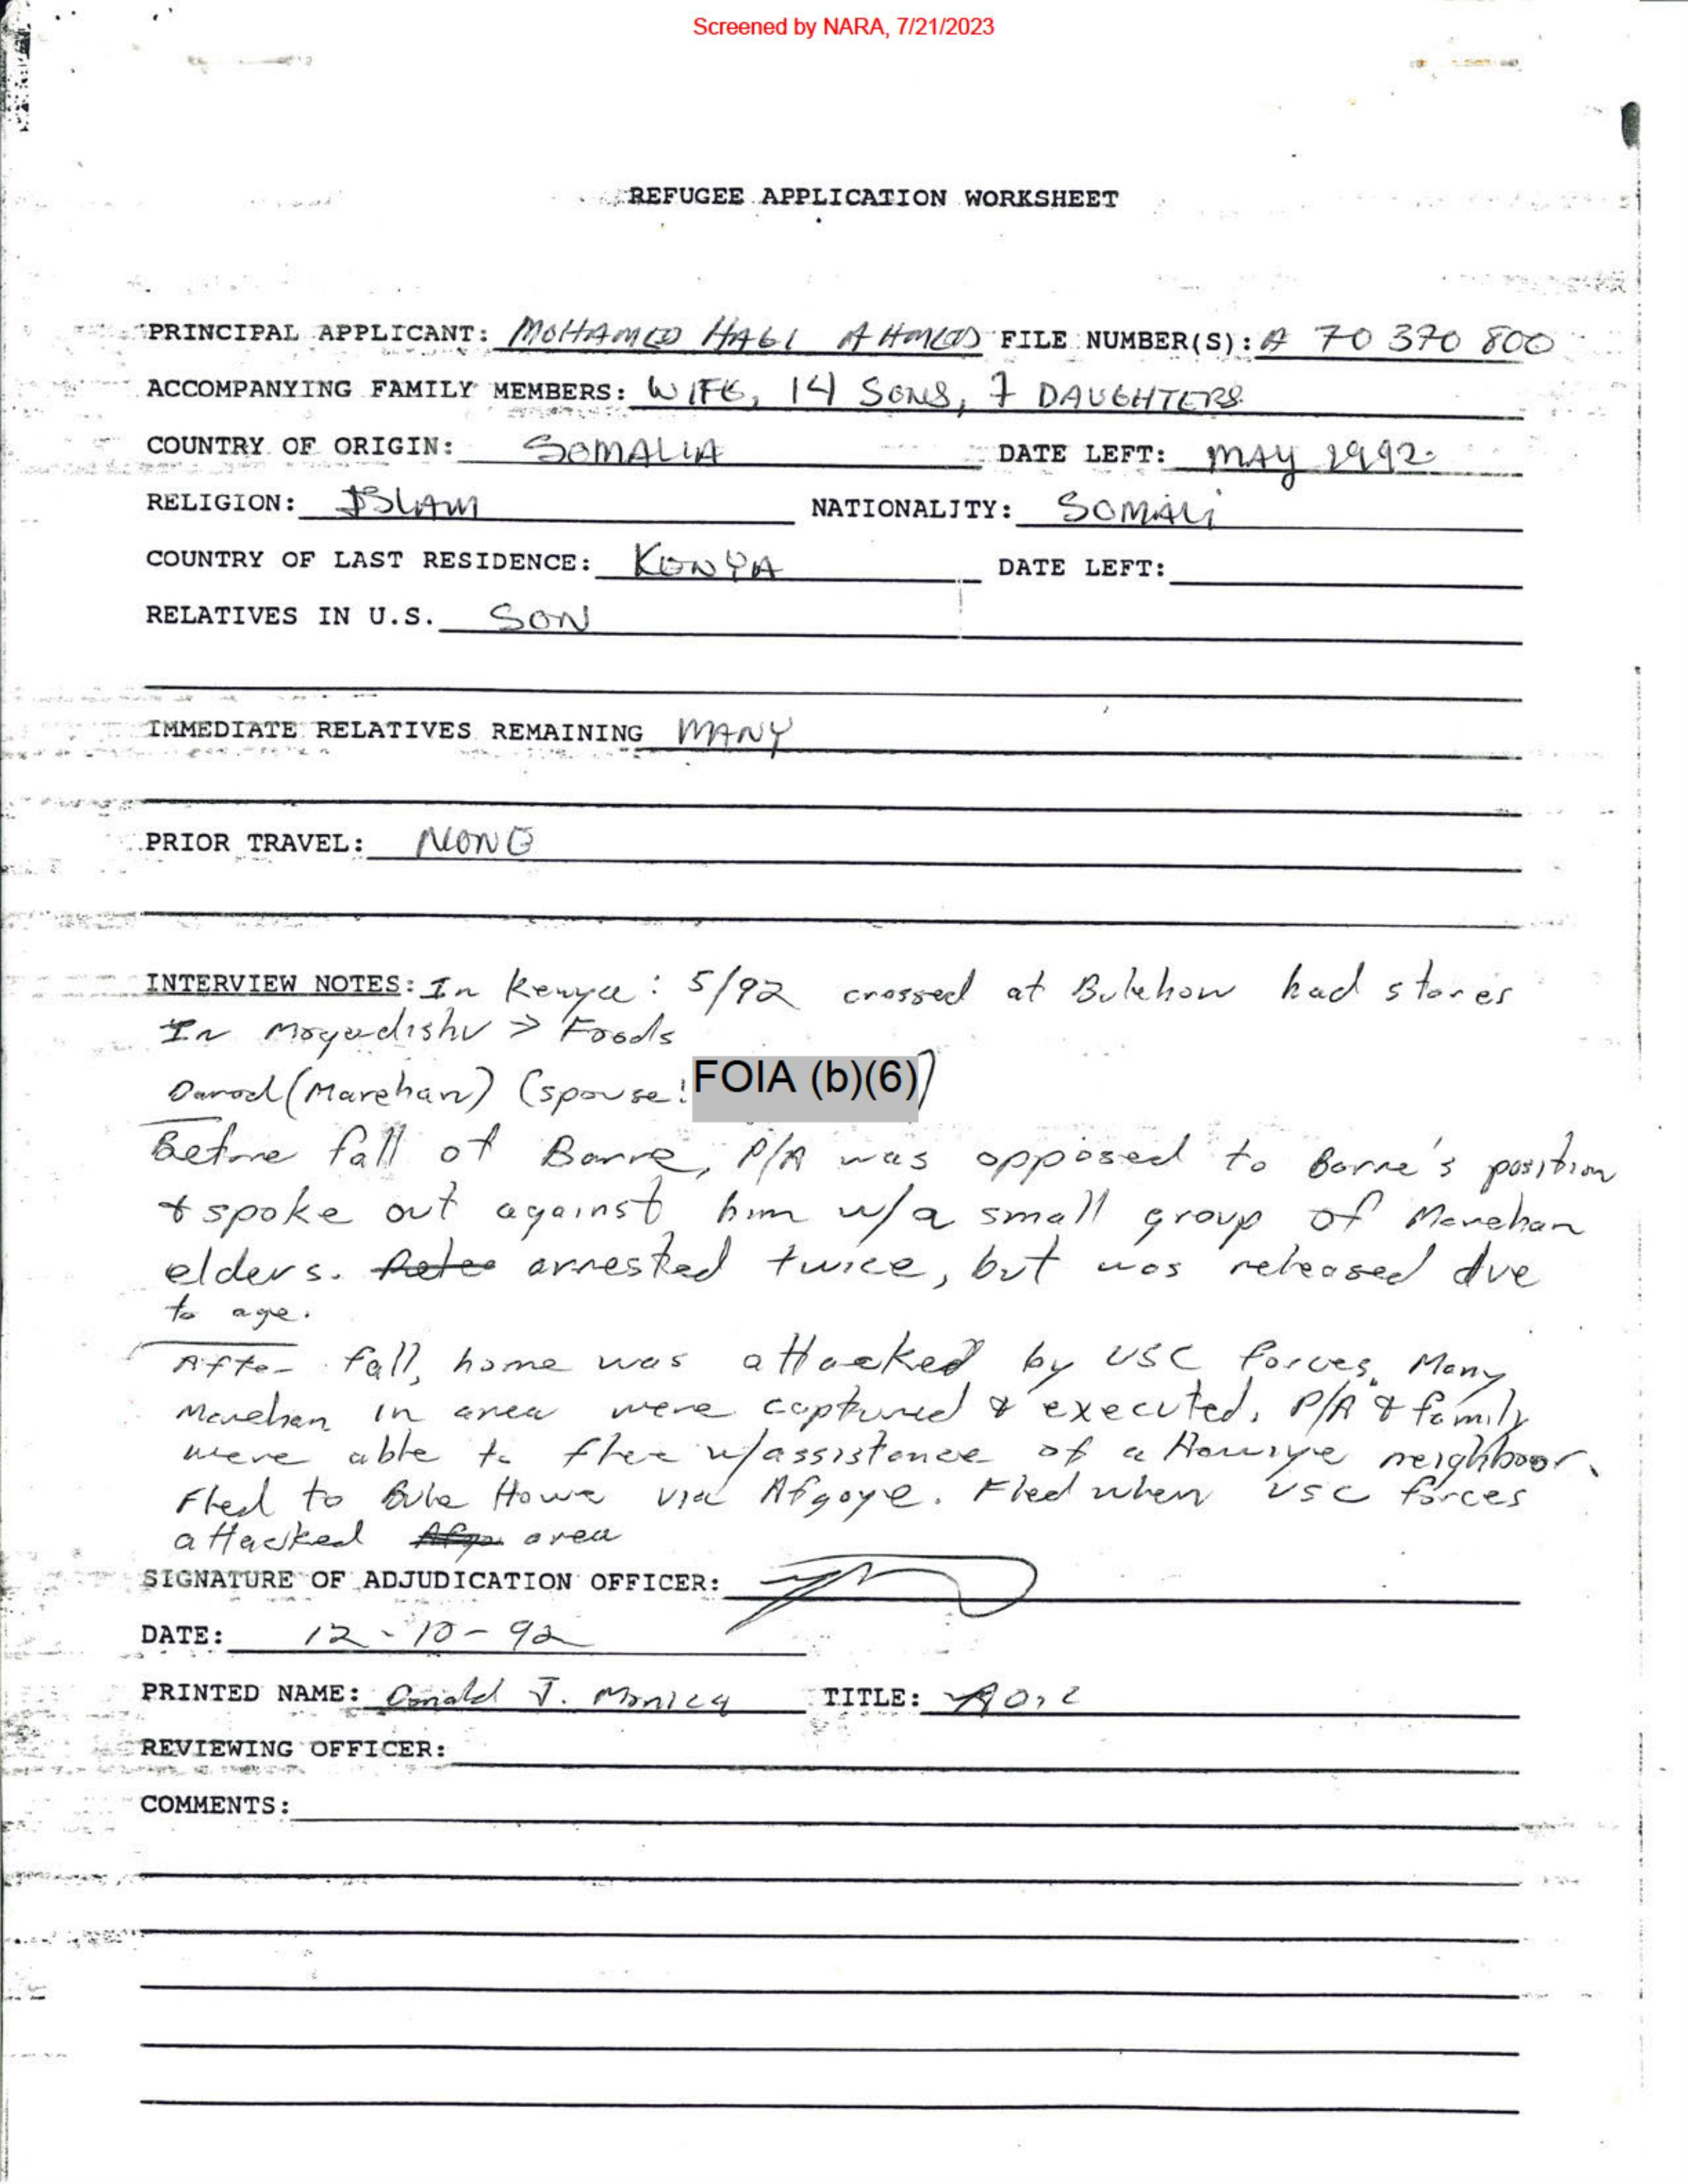 Screened by NARA, 7/21/2023
REFUGEE APPLICATION WORKSHEET
PRINCIPAL APPLICANT: MOHAMED HAGI AHMED FILE NUMBER(S): A 70 370 800
ACCOMPANYING FAMILY MEMBERS: WIFE, 14 SONS, 7 DAUGHTERS
COUNTRY OF ORIGIN: SOMALIA DATE LEFT: MAY 1992
RELIGION: ISLAM NATIONALITY: SOMALI
COUNTRY OF LAST RESIDENCE: KENYA DATE LEFT:
RELATIVES IN U.S. SON
IMMEDIATE RELATIVES REMAINING MANY
PRIOR TRAVEL: NONE
INTERVIEW NOTES: In Kenya: 5/92 crossed at Bulehow had stores
In Mogadishu > Foods
Darod (Marehan) (spouse: FOIA (b)(6))
Before fall of Barre, P/A was opposed to Barre's position
& spoke out against him w/a small group of Marehan
elders. arrested twice, but was released due
to age.
After fall, home was attacked by USC forces. Many
Marehan in area were captured & executed. P/A & family
were able to flee w/assistance of a Hawiye neighboor.
Fled to Bula Howa via Afgoye. Fled when USC forces
attacked area
SIGNATURE OF ADJUDICATION OFFICER:
DATE: 12-10-92
PRINTED NAME: Donald J. Monica TITLE:
REVIEWING OFFICER:
COMMENTS: